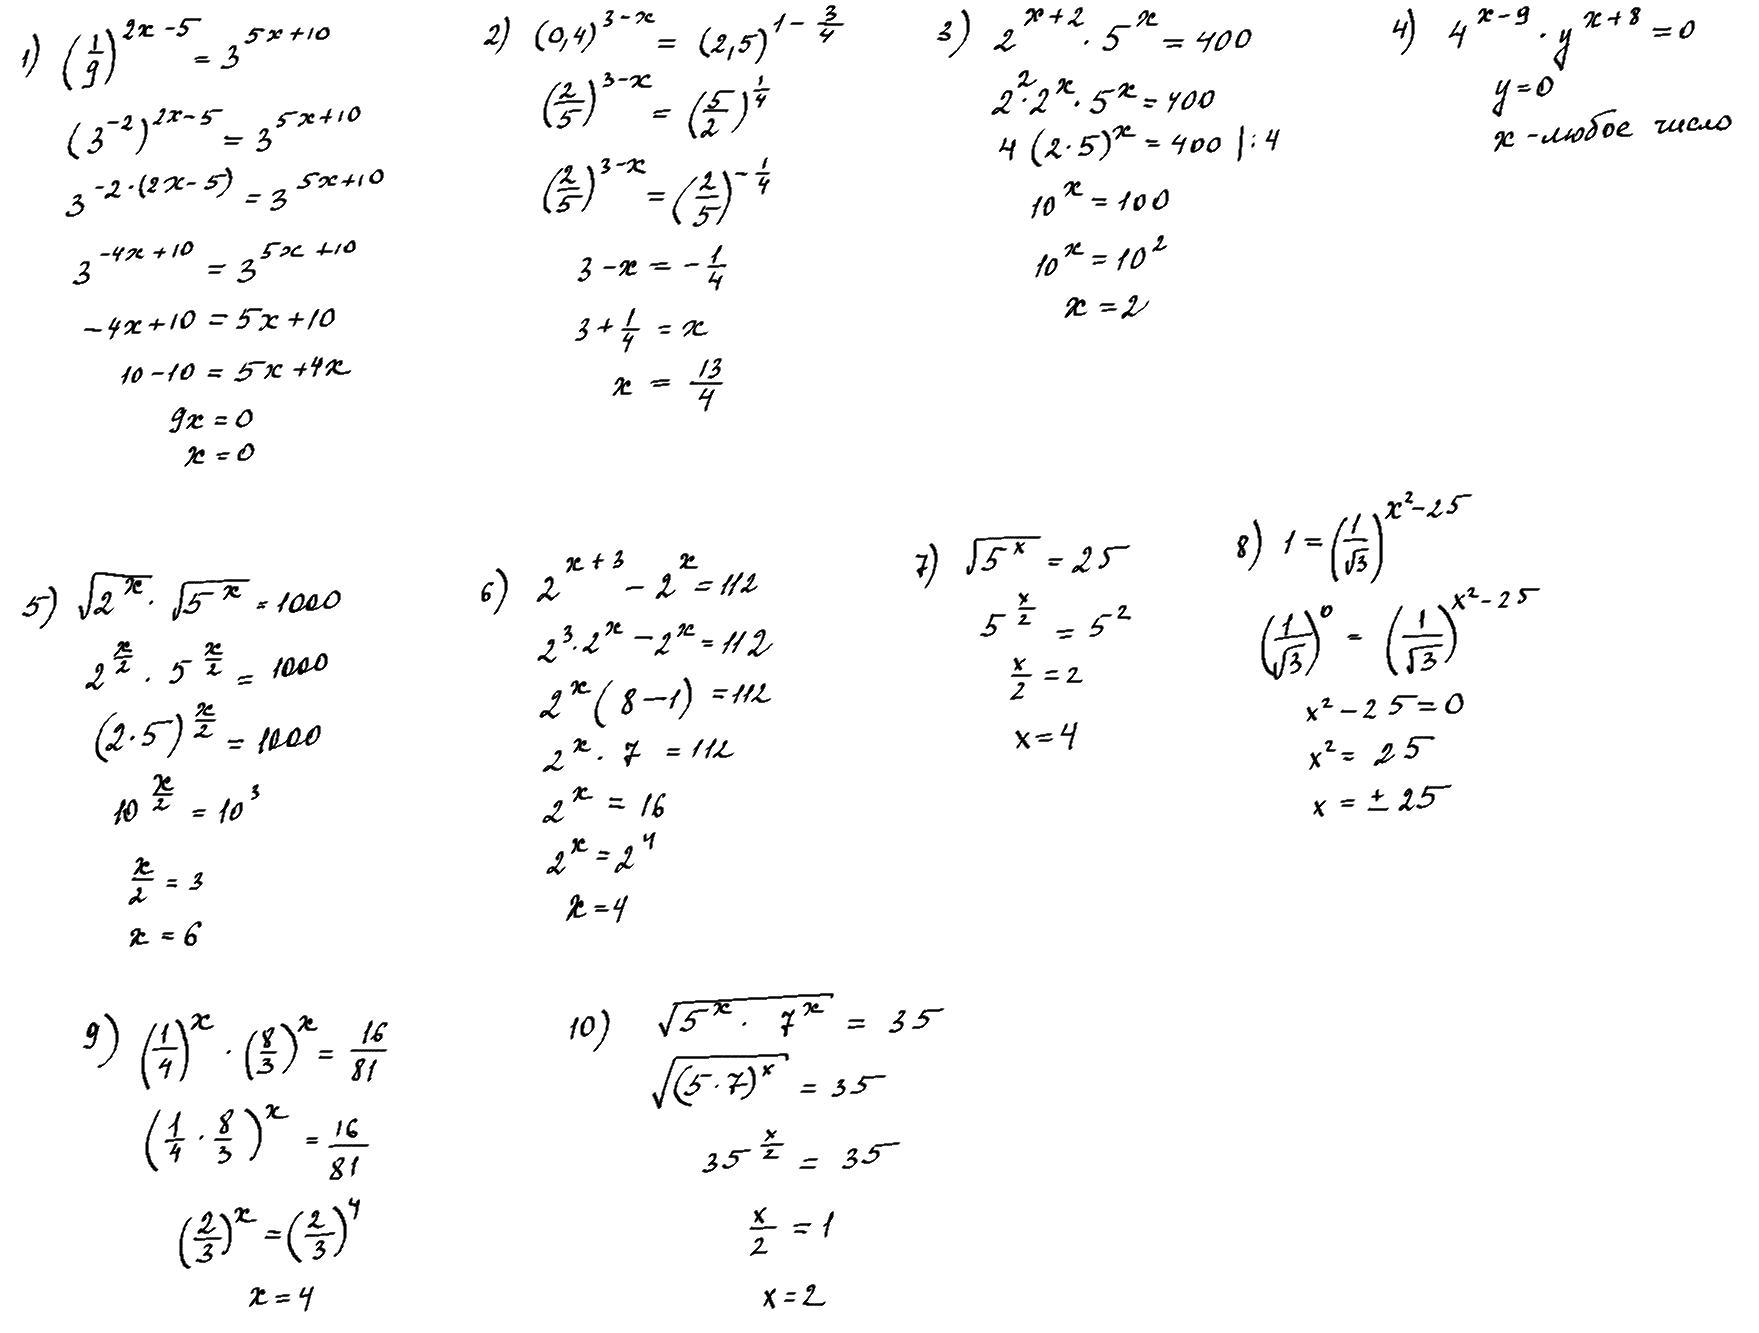 1) (1/9)^(2x-5) = 3^(5x+10)
(3^(-2))^(2x-5) = 3^(5x+10)
3^(-2·(2x-5)) = 3^(5x+10)
3^(-4x+10) = 3^(5x+10)
-4x+10 = 5x+10
10-10 = 5x+4x
9x = 0
x = 0
2) (0,4)^(3-x) = (2,5)^(1-3/4)
(2/5)^(3-x) = (5/2)^(1/4)
(2/5)^(3-x) = (2/5)^(-1/4)
3-x = -1/4
3+1/4 = x
x = 13/4
3) 2^(x+2) · 5^x = 400
2^2 · 2^x · 5^x = 400
4(2·5)^x = 400 |:4
10^x = 100
10^x = 10^2
x = 2
4) 4^(x-9) · y^(x+8) = 0
y = 0
x - любое число
5) √(2^x) · √(5^x) = 1000
2^(x/2) · 5^(x/2) = 1000
(2·5)^(x/2) = 1000
10^(x/2) = 10^3
x/2 = 3
x = 6
6) 2^(x+3) - 2^x = 112
2^3 · 2^x - 2^x = 112
2^x(8-1) = 112
2^x · 7 = 112
2^x = 16
2^x = 2^4
x = 4
7) √(5^x) = 25
5^(x/2) = 5^2
x/2 = 2
x = 4
8) 1 = (1/√3)^(x²-25)
(1/√3)^0 = (1/√3)^(x²-25)
x²-25 = 0
x² = 25
x = ±25
9) (1/4)^x · (8/3)^x = 16/81
(1/4 · 8/3)^x = 16/81
(2/3)^x = (2/3)^4
x = 4
10) √(5^x · 7^x) = 35
√((5·7)^x) = 35
35^(x/2) = 35
x/2 = 1
x = 2